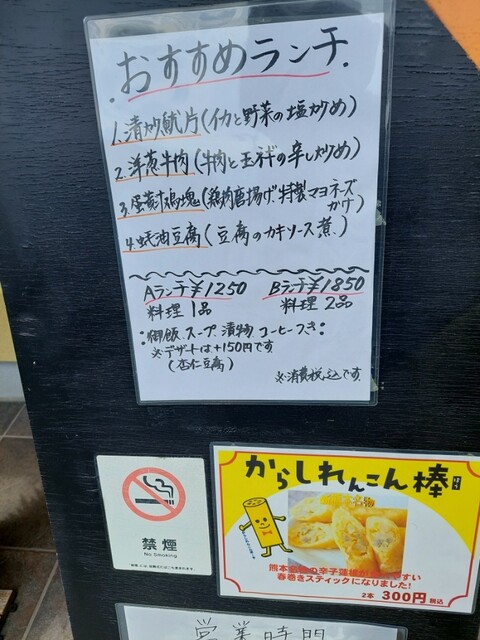 おすすめランチ
1.清炒魷片(イカと野菜の塩炒め)
2.洋葱牛肉(牛肉と玉ネギの辛し炒め)
(鶏肉唐揚げ特製マヨネーズ
かけ)
4.蚝油豆腐(豆腐のカキソース煮)
Aランチ¥1250 Bランチ¥1850
料理1品 料理2品
御飯、スープ、漬物、コーヒーつき
※デザートは+150円です
(杏仁豆腐)
※消費税込です
からしれんこん棒
禁煙
No Smoking
春巻きスティックになりました!
2本 300円 税込
営業時間